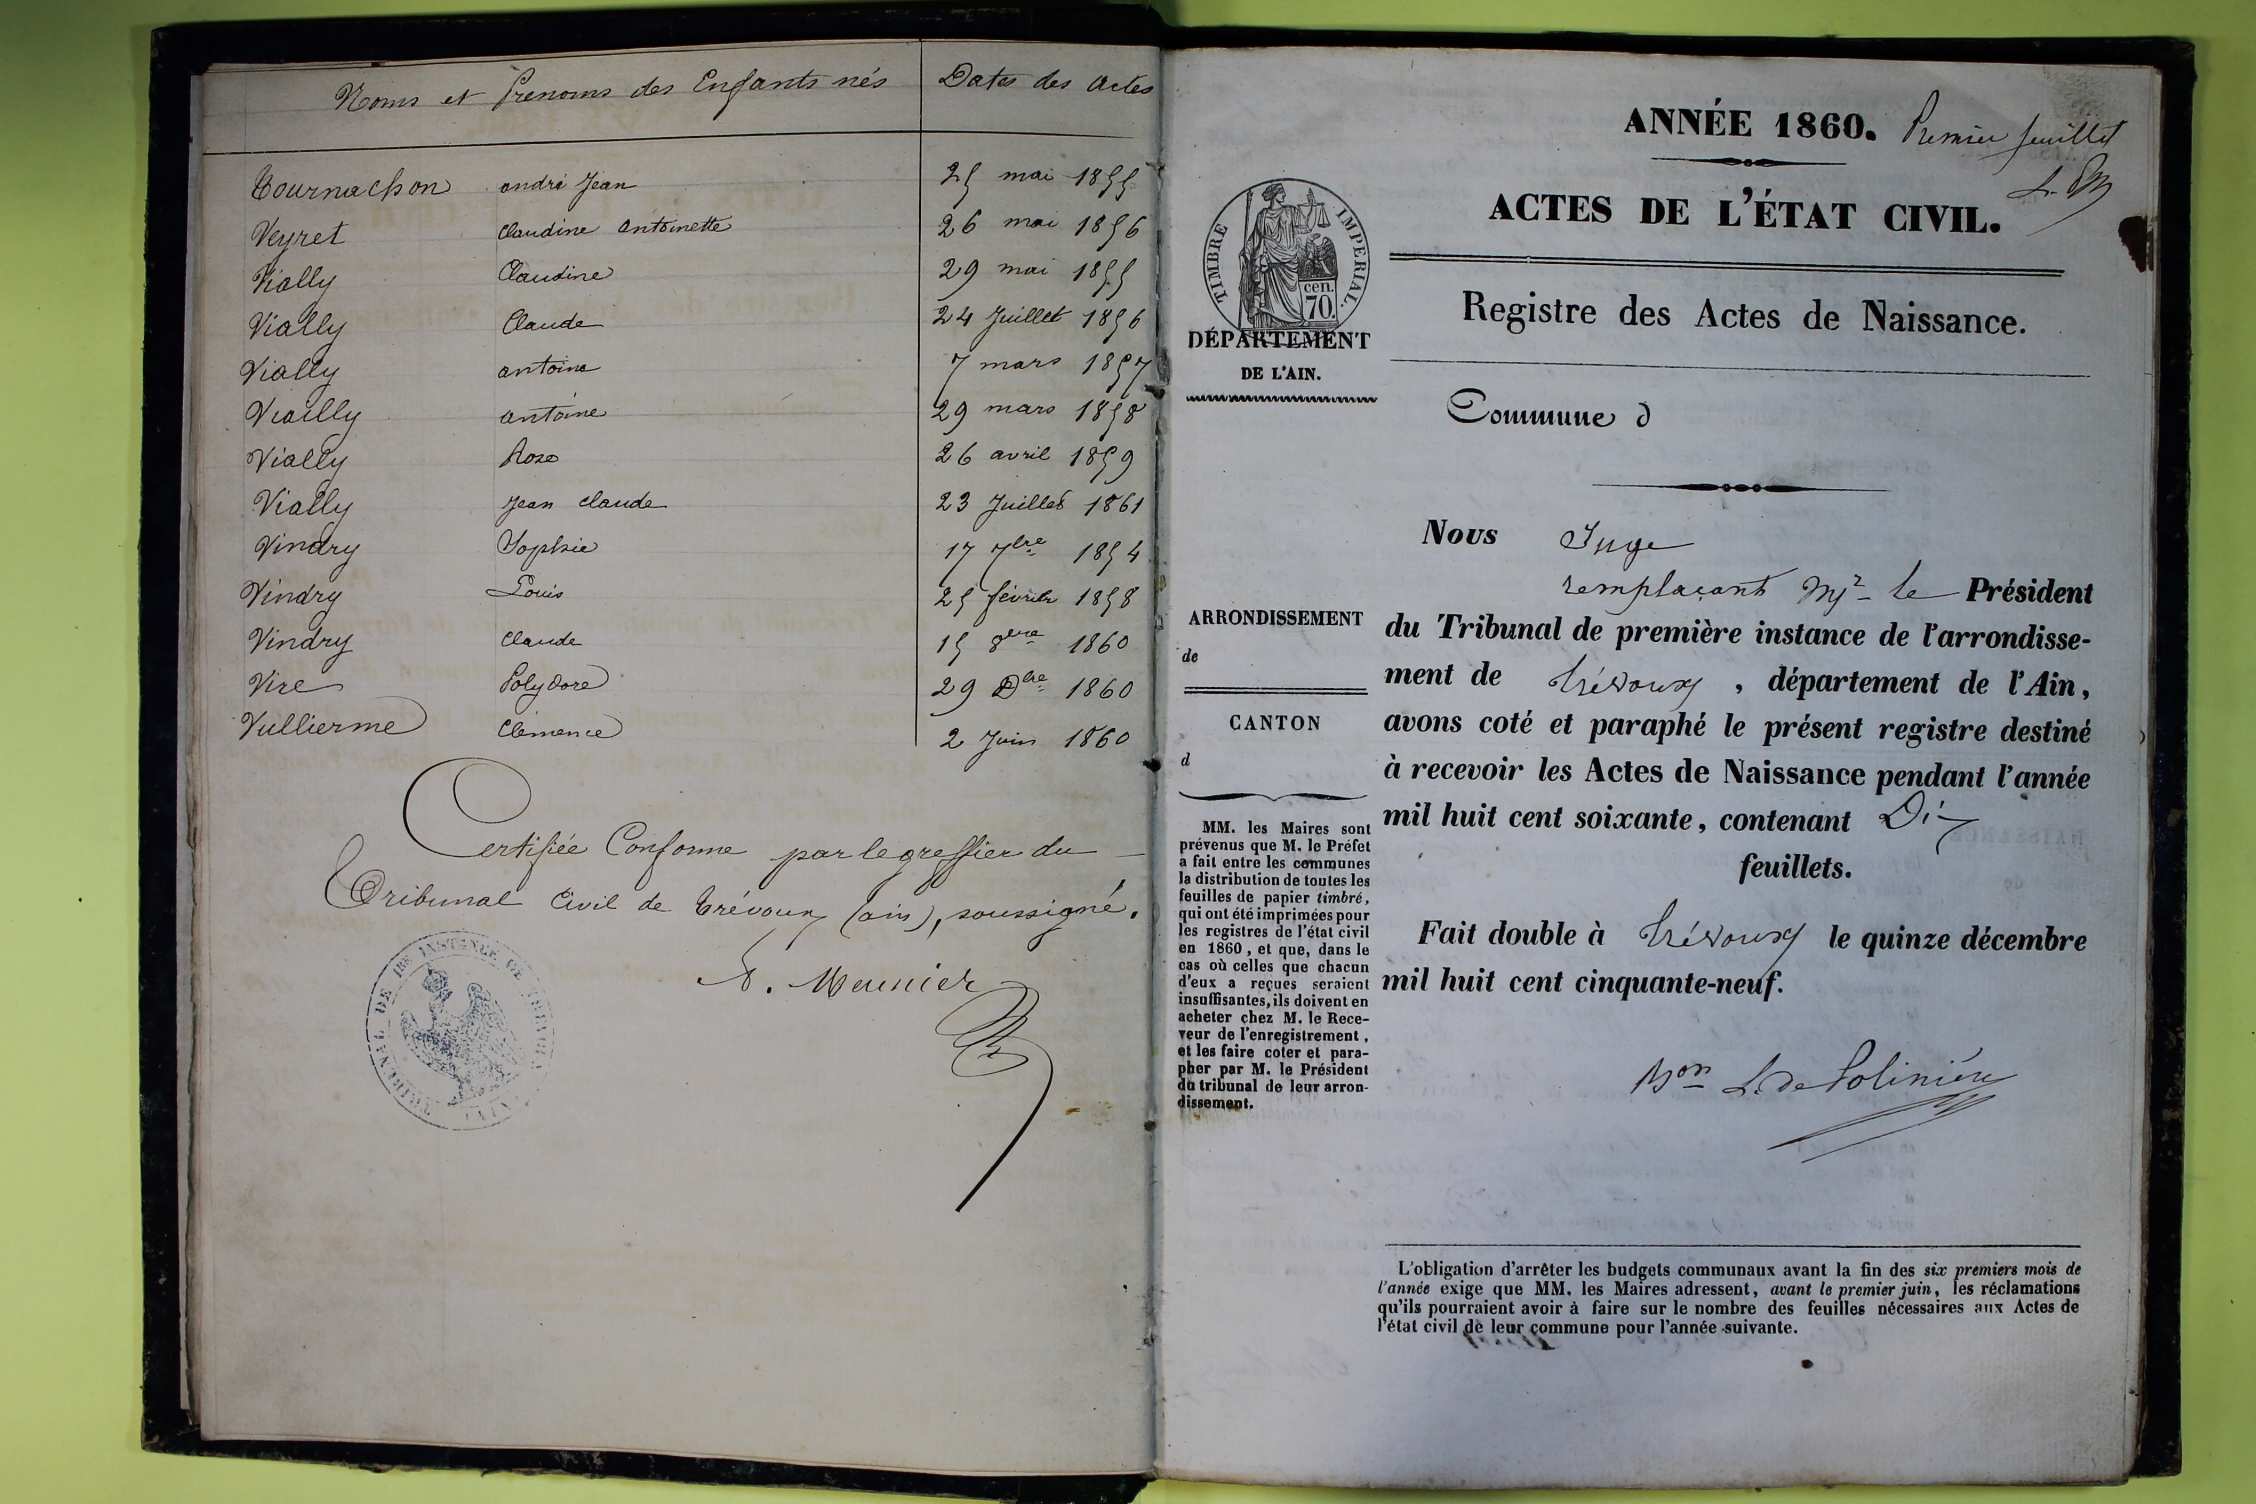 Noms et Prenoms des Enfants nés Dates des Actes
Tournachon andré Jean 25 mai 1855
Veyret Claudine Antoinette 26 mai 1856
Vially Claudine 29 mai 1855
Vially Claude 24 Juillet 1856
Vially antoine 7 mars 1857
Viailly antoine 29 mars 1858
Vially Rose 26 avril 1859
Vially Jean Claude 23 Juillet 1861
Vindry Sophie 17 7bre 1854
Vindry Louis 25 février 1858
Vindry Claude 15 8bre 1860
Vire Polydore 29 Dbre 1860
Vullierme Clémence 2 Juin 1860
Certifiée Conforme par le greffier du
Tribunal Civil de Trévoux (ain), soussigné.
A. Meunier
TRIBUNAL DE 1RE INSTANCE DE TRÉVOUX
ANNÉE 1860. Premier feuillet
ACTES DE L'ÉTAT CIVIL.
TIMBRE IMPERIAL.
cen.
70.
DÉPARTEMENT
DE L'AIN.
Registre des Actes de Naissance.
Commune d
ARRONDISSEMENT
de
CANTON
d
MM. les Maires sont
prévenus que M. le Préfet
a fait entre les communes
la distribution de toutes les
feuilles de papier timbré,
qui ont été imprimées pour
les registres de l'état civil
en 1860, et que, dans le
cas où celles que chacun
d'eux a reçues seraient
insuffisantes, ils doivent en
acheter chez M. le Rece-
veur de l'enregistrement,
et les faire coter et para-
pher par M. le Président
du tribunal de leur arron-
dissement.
Nous Juge
remplaçant Mr le Président
du Tribunal de première instance de l'arrondisse-
ment de Trévoux, département de l'Ain,
avons coté et paraphé le présent registre destiné
à recevoir les Actes de Naissance pendant l'année
mil huit cent soixante, contenant Dix
feuillets.
Fait double à Trévoux le quinze décembre
mil huit cent cinquante-neuf.
Bon L. de Polinière
L'obligation d'arrêter les budgets communaux avant la fin des six premiers mois de
l'année exige que MM. les Maires adressent, avant le premier juin, les réclamations
qu'ils pourraient avoir à faire sur le nombre des feuilles nécessaires aux Actes de
l'état civil de leur commune pour l'année suivante.